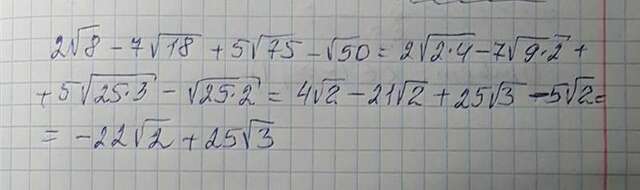 2√8 - 7√18 + 5√75 - √50 = 2√2·4 - 7√9·2 +
+ 5√25·3 - √25·2 = 4√2 - 21√2 + 25√3 - 5√2 =
= -22√2 + 25√3